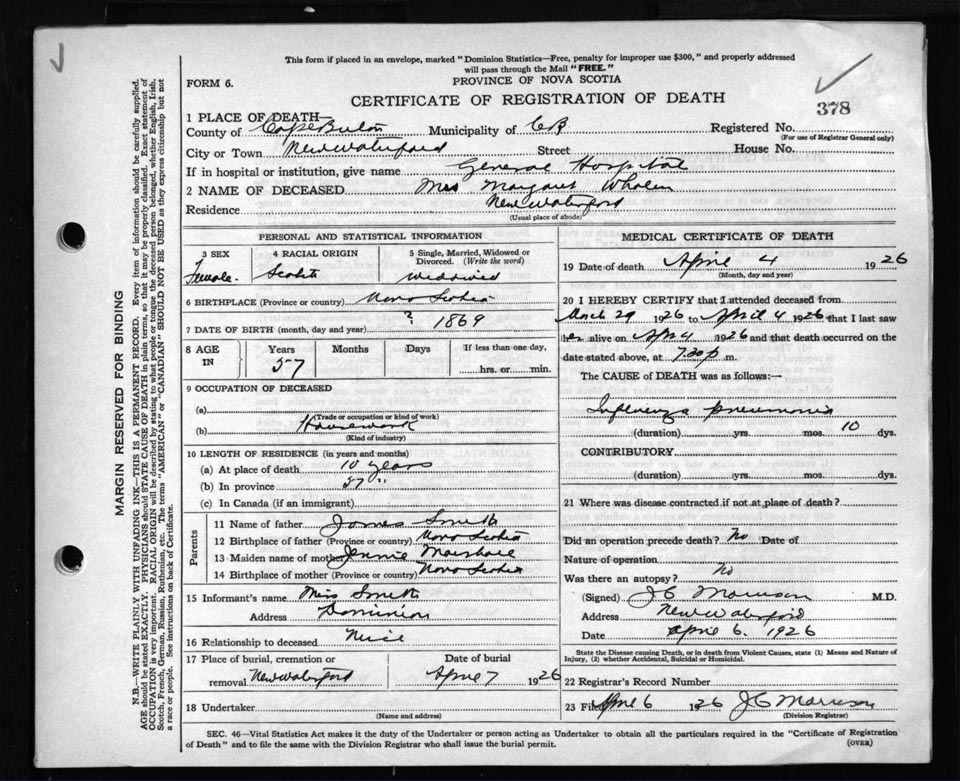 This form if placed in an envelope, marked "Dominion Statistics—Free, penalty for improper use $300," and properly addressed
will pass through the Mail "FREE."
FORM 6.
PROVINCE OF NOVA SCOTIA
CERTIFICATE OF REGISTRATION OF DEATH
378
1 PLACE OF DEATH—
County of Cape Breton Municipality of CB Registered No.
(For use of Registrar General only)
City or Town New Waterford Street House No.
If in hospital or institution, give name General Hospital
2 NAME OF DECEASED Mrs Margaret Whalen
Residence New Waterford
(Usual place of abode)
PERSONAL AND STATISTICAL INFORMATION
3 SEX 4 RACIAL ORIGIN 5 Single, Married, Widowed or Divorced. (Write the word)
Female. Scotch widowed
6 BIRTHPLACE (Province or country) Nova Scotia
7 DATE OF BIRTH (month, day and year) ? 1869
8 AGE IN Years Months Days If less than one day,
57 hrs. or min.
9 OCCUPATION OF DECEASED
(a)
(Trade or occupation or kind of work)
(b) Housework
(Kind of industry)
10 LENGTH OF RESIDENCE (in years and months)
(a) At place of death 10 years
(b) In province 57 "
(c) In Canada (if an immigrant)
Parents
11 Name of father James Smith
12 Birthplace of father (Province or country) Nova Scotia
13 Maiden name of mother Jennie Marshall
14 Birthplace of mother (Province or country) Nova Scotia
15 Informant's name Miss Smith
Address Dominion
16 Relationship to deceased Niece
17 Place of burial, cremation or Date of burial
removal New Waterford April 7 1926
18 Undertaker
(Name and address)
MEDICAL CERTIFICATE OF DEATH
19 Date of death April 4 1926
(Month, day and year)
20 I HEREBY CERTIFY that I attended deceased from
March 29 1926 to April 4 1926 that I last saw
her alive on Apr 4 1926 and that death occurred on the
date stated above, at 7.30 p m.
The CAUSE of DEATH was as follows:—
Influenza pneumonia
(duration) yrs. mos. 10 dys.
CONTRIBUTORY
(duration) yrs. mos. dys.
21 Where was disease contracted if not at place of death?
Did an operation precede death? No Date of
Nature of operation
Was there an autopsy? No
(Signed) J C Morrison M.D.
Address New Waterford
Date April 6. 1926
State the Disease causing Death, or in death from Violent Causes, state (1) Means and Nature of
Injury, (2) whether Accidental, Suicidal or Homicidal.
22 Registrar's Record Number
23 Filed April 6 1926 J C Morrison
(Division Registrar)
SEC. 46—Vital Statistics Act makes it the duty of the Undertaker or person acting as Undertaker to obtain all the particulars required in the "Certificate of Registration
of Death" and to file the same with the Division Registrar who shall issue the burial permit.
(OVER)
MARGIN RESERVED FOR BINDING
N.B.—WRITE PLAINLY WITH UNFADING INK—THIS IS A PERMANENT RECORD. Every item of information should be carefully supplied.
AGE should be stated EXACTLY. PHYSICIANS should STATE CAUSE OF DEATH in plain terms, so that it may be properly classified. Exact statement of
OCCUPATION is very important. RACIAL ORIGIN will be described by stating to what people or tongue the deceased person belonged, whether English, Irish,
Scotch, French, German, Russian, Ruthenian, etc. The terms "AMERICAN" or "CANADIAN" SHOULD NOT BE USED as they express citizenship but not
a race or people. See instructions on back of Certificate.